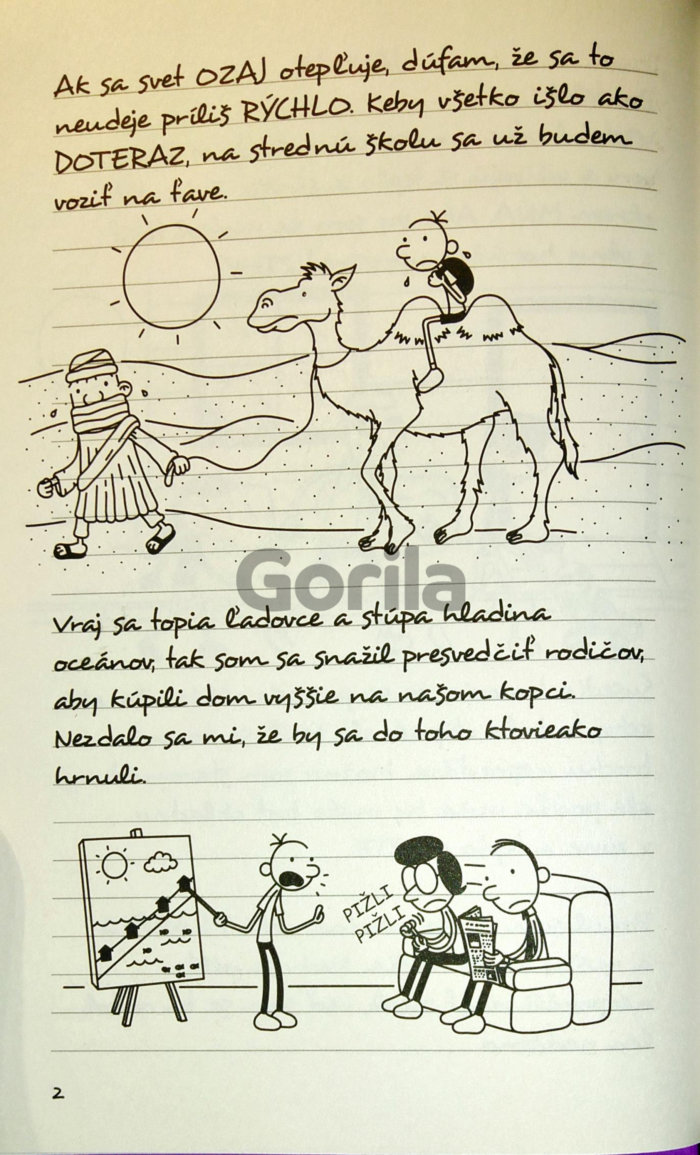 Ak sa svet OZAJ otepľuje, dúfam, že sa to
neudeje príliš RÝCHLO. Keby všetko išlo ako
DOTERAZ, na strednú školu sa už budem
voziť na ťave.
Gorila
Vraj sa topia ľadovce a stúpa hladina
oceánov, tak som sa snažil presvedčiť rodičov,
aby kúpili dom vyššie na našom kopci.
Nezdalo sa mi, že by sa do toho ktovieako
hrnuli.
PIŽLI
PIŽLI
2